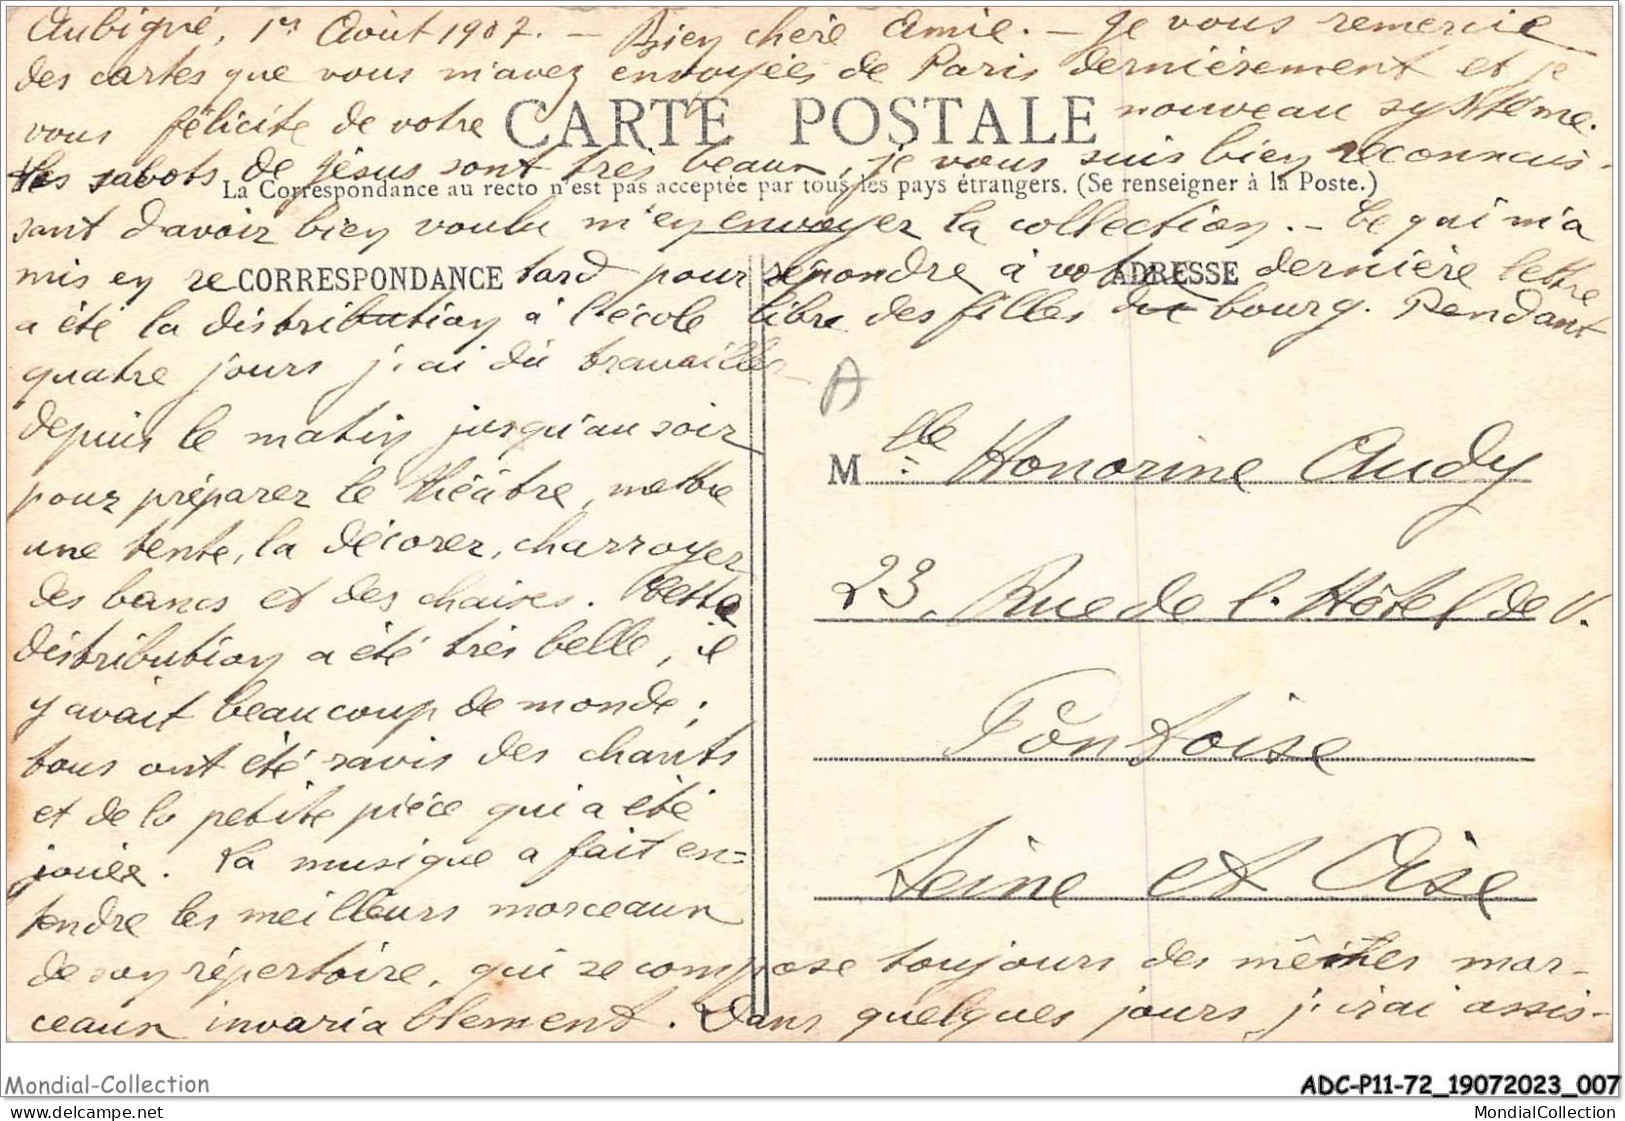 Aubigné, 1er Août 1907. — Bien chère Amie. — Je vous remercie
des cartes que vous m'avez envoyées de Paris dernièrement et je
vous félicite de votre nouveau système.
CARTE POSTALE
Les sabots de Jésus sont très beaux, je vous suis bien reconnais-
La Correspondance au recto n'est pas acceptée par tous les pays étrangers. (Se renseigner à la Poste.)
sant d'avoir bien voulu m'en envoyer la collection. — Ce qui m'a
mis en retard pour répondre à votre dernière lettre
CORRESPONDANCE
ADRESSE
a été la distribution à l'école libre des filles du bourg. Pendant
quatre jours j'ai dû travailler
depuis le matin jusqu'au soir
pour préparer le théâtre, mettre
une tente, la décorer, charroyer
des bancs et des chaises. Cette
distribution a été très belle, il
y avait beaucoup de monde ;
tous ont été ravis des chants
et de la petite pièce qui a été
jouée. La musique a fait en=
tendre les meilleurs morceaux
de son répertoire, qui se compose toujours des mêmes mor-
ceaux invariablement. Dans quelques jours j'irai assis-
A
Mlle Honorine Audy
23, Rue de l'Hôtel de V.
Pontoise
Seine et Oise
Mondial-Collection
ADC-P11-72_19072023_007
www.delcampe.net
MondialCollection